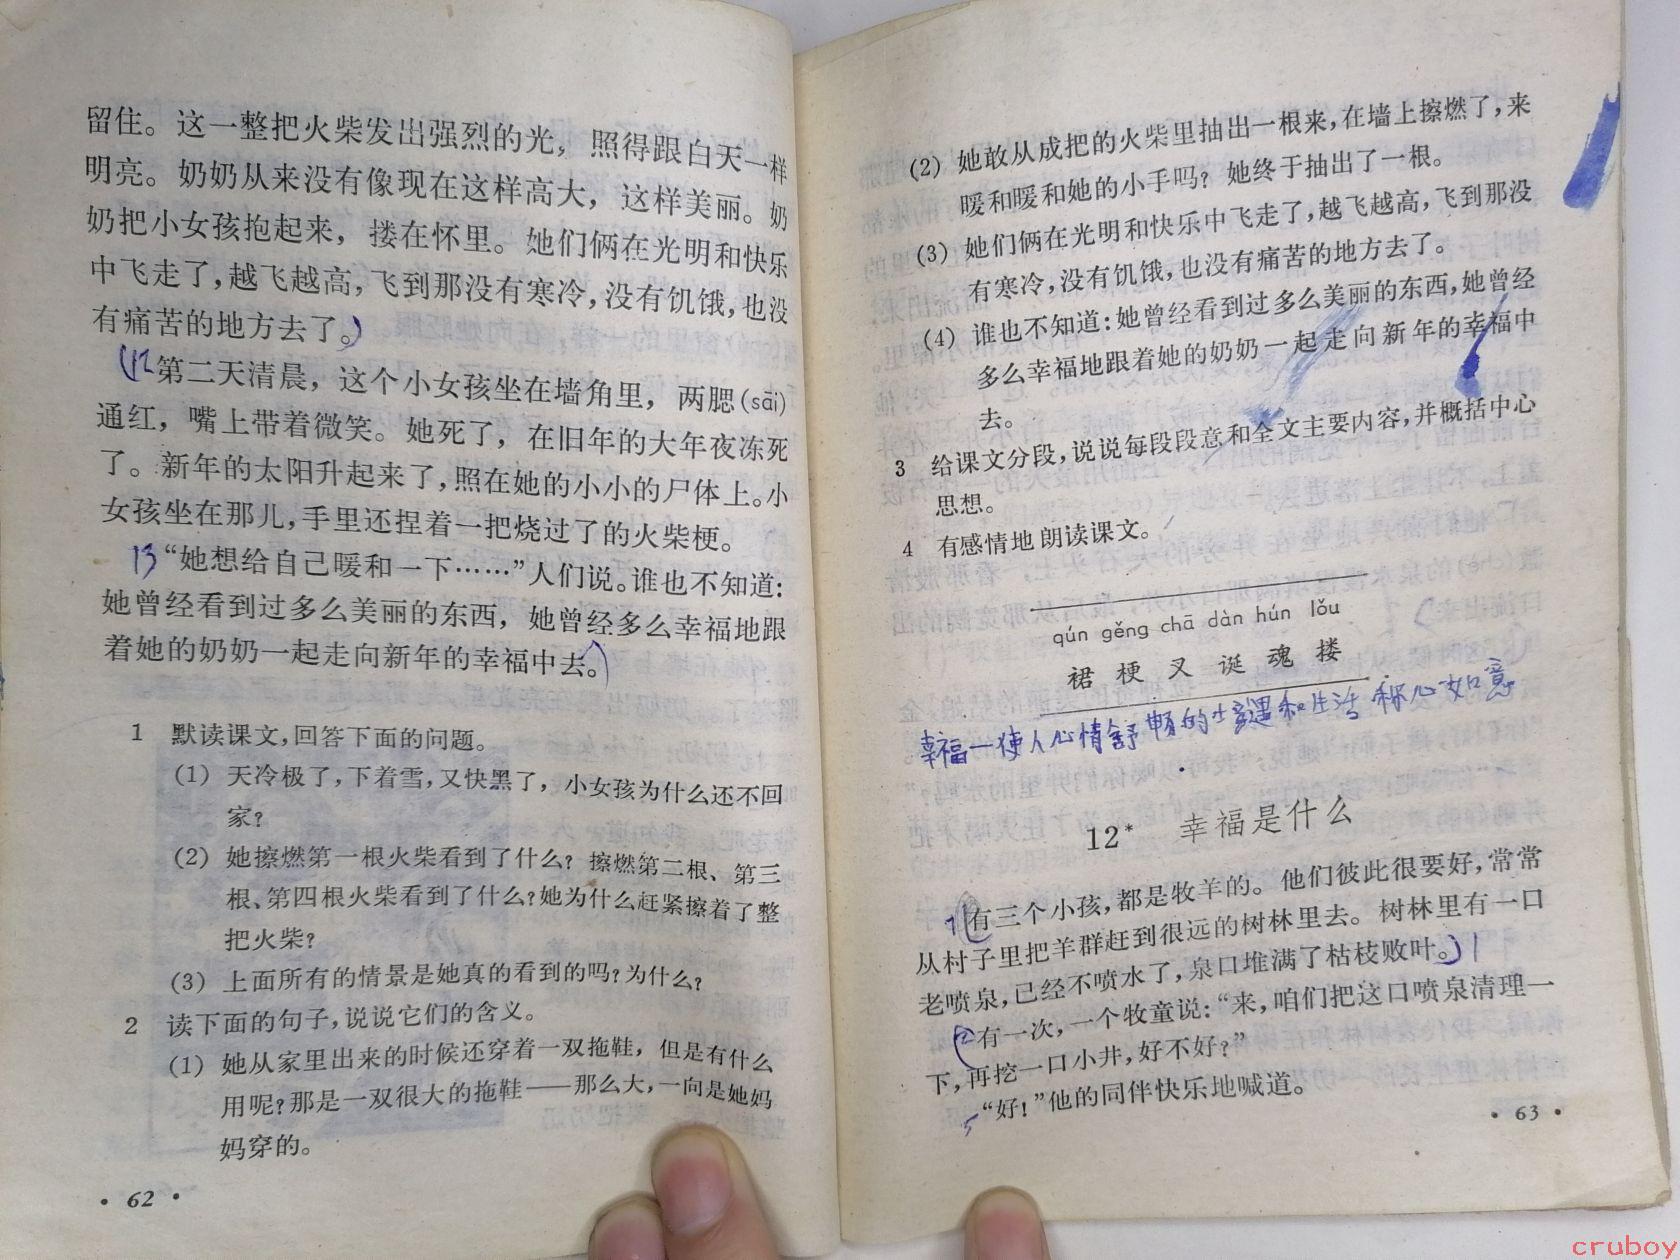 留住。这一整把火柴发出强烈的光，照得跟白天一样
明亮。奶奶从来没有像现在这样高大，这样美丽。奶
奶把小女孩抱起来，搂在怀里。她们俩在光明和快乐
中飞走了，越飞越高，飞到那没有寒冷，没有饥饿，也没
有痛苦的地方去了。
12第二天清晨，这个小女孩坐在墙角里，两腮(sāi)
通红，嘴上带着微笑。她死了，在旧年的大年夜冻死
了。新年的太阳升起来了，照在她的小小的尸体上。小
女孩坐在那儿，手里还捏着一把烧过了的火柴梗。
13“她想给自己暖和一下……”人们说。谁也不知道：
她曾经看到过多么美丽的东西，她曾经多么幸福地跟
着她的奶奶一起走向新年的幸福中去。
1 默读课文，回答下面的问题。
(1) 天冷极了，下着雪，又快黑了，小女孩为什么还不回
家？
(2) 她擦燃第一根火柴看到了什么？擦燃第二根、第三
根、第四根火柴看到了什么？她为什么赶紧擦着了整
把火柴？
(3) 上面所有的情景是她真的看到的吗？为什么？
2 读下面的句子，说说它们的含义。
(1) 她从家里出来的时候还穿着一双拖鞋，但是有什么
用呢？那是一双很大的拖鞋——那么大，一向是她妈
妈穿的。
• 62 •
(2) 她敢从成把的火柴里抽出一根来，在墙上擦燃了，来
暖和暖和她的小手吗？她终于抽出了一根。
(3) 她们俩在光明和快乐中飞走了，越飞越高，飞到那没
有寒冷，没有饥饿，也没有痛苦的地方去了。
(4) 谁也不知道：她曾经看到过多么美丽的东西，她曾经
多么幸福地跟着她的奶奶一起走向新年的幸福中
去。
3 给课文分段，说说每段段意和全文主要内容，并概括中心
思想。
4 有感情地朗读课文。
qún gěng chā dàn hún lǒu
裙 梗 叉 诞 魂 搂
幸福—使人心情舒畅的境遇和生活 称心如意
12* 幸福是什么
1有三个小孩，都是牧羊的。他们彼此很要好，常常
从村子里把羊群赶到很远的树林里去。树林里有一口
老喷泉，已经不喷水了，泉口堆满了枯枝败叶。1
2有一次，一个牧童说：“来，咱们把这口喷泉清理一
下，再挖一口小井，好不好？”
“好！”他的同伴快乐地喊道。
• 63 •
cruboy